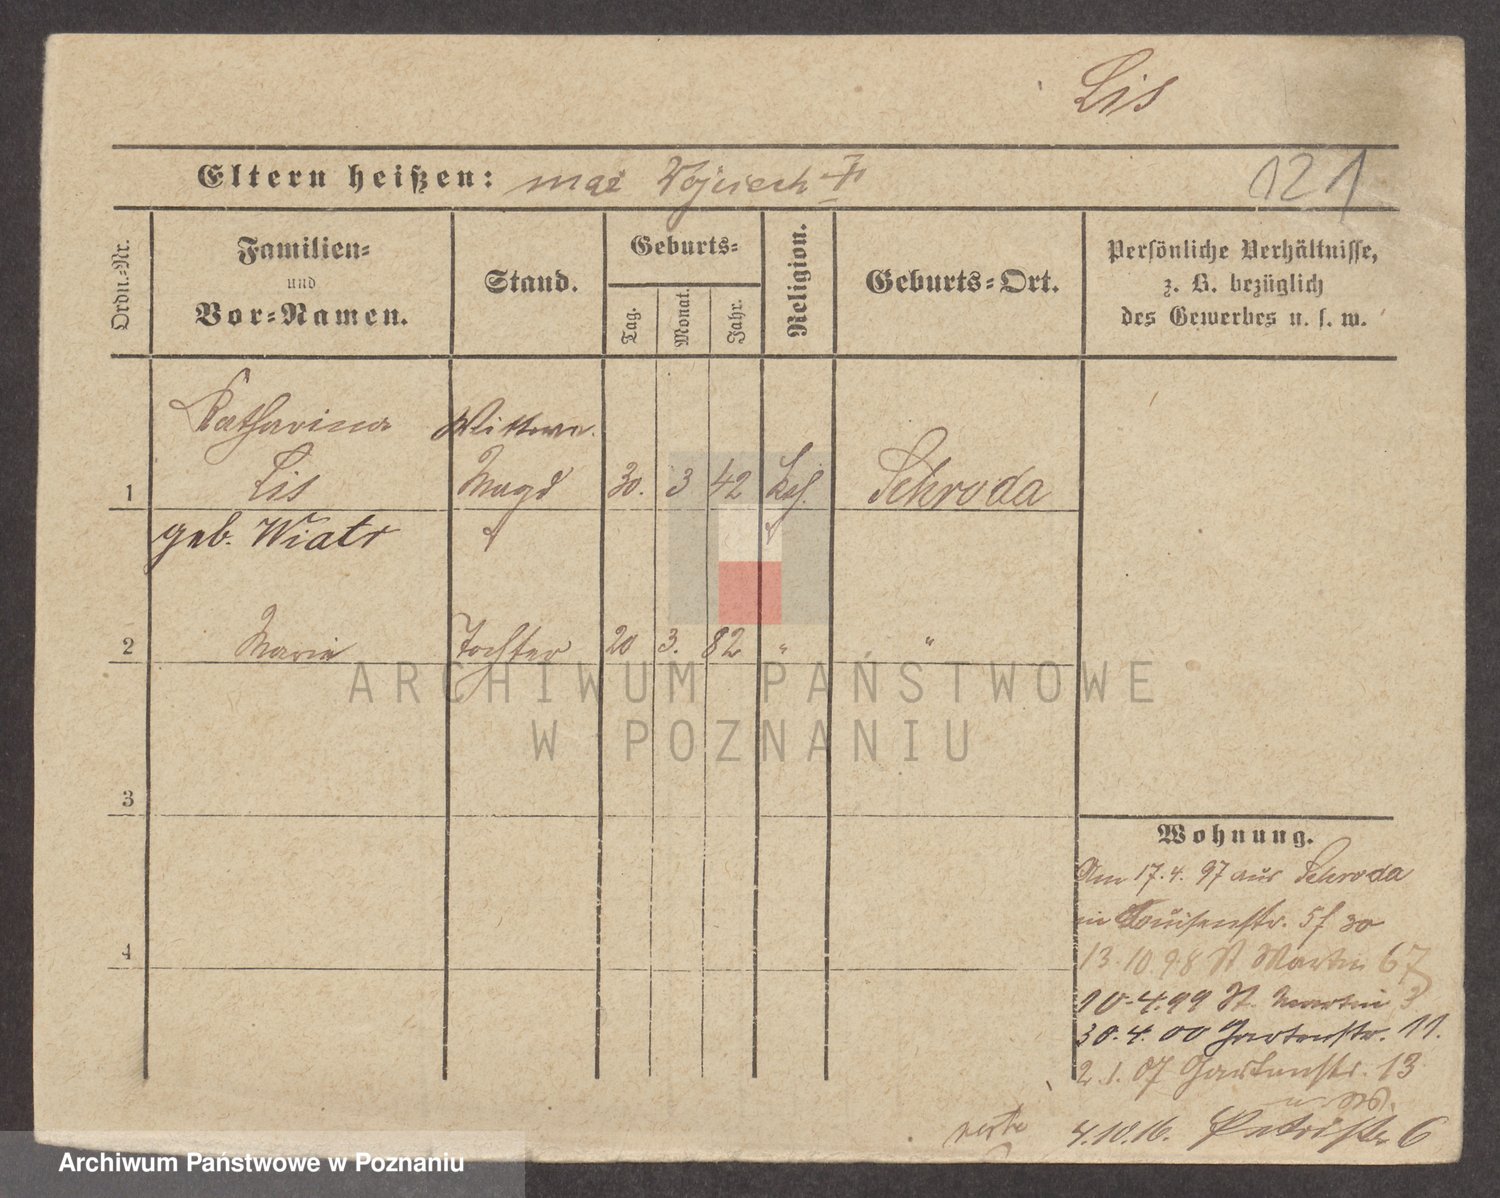 Lis
Eltern heißen: mąż Wojciech †
121
Ordn.-Nr.
Familien-
und
Vor-Namen.
Stand.
Geburts-
Tag.
Monat.
Jahr.
Religion.
Geburts-Ort.
Persönliche Verhältnisse,
z. B. bezüglich
des Gewerbes u. s. w.
Katharina Wittwe
1 Lis Magd 30. 3 42 kath. Schroda
geb. Wiatr
2 Marie Tochter 20 3. 82 " "
3
4
Wohnung.
Am 17.4.97 aus Schroda
in Louisenstr. 5 30
13.10 98 St Martin 67
10.4.99 St. Martin 3
30.4.00 Gartenstr. 11.
2.1.07 Gartenstr. 13
4.10.16. Petristr 6
ARCHIWUM PAŃSTWOWE
W POZNANIU
Archiwum Państwowe w Poznaniu